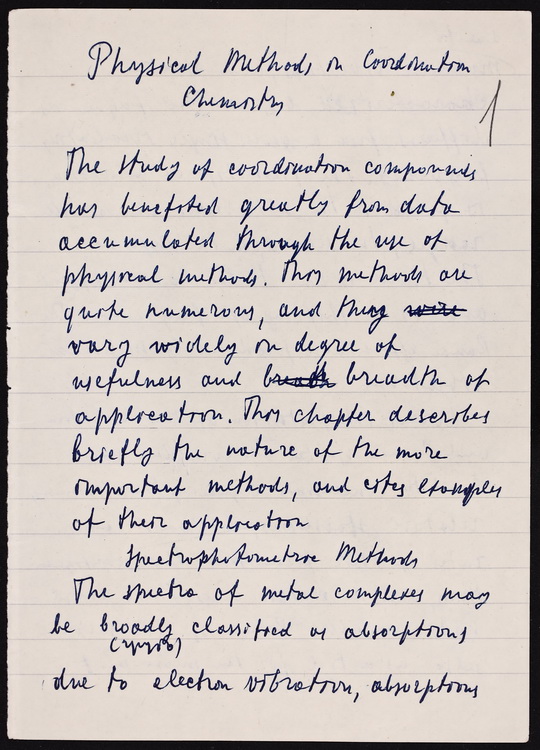 Physical Methods in Coordination
Chemistry
1
The study of coordination compounds
has benefited greatly from data
accumulated through the use of
physical methods. This methods are
quite numerous, and they were
vary widely in degree of
usefulness and breath breadth of
application. This chapter describes
briefly the nature of the more
important methods, and cites examples
of their application
Spectrophotometric Methods
The spectra of metal complexes may
be broadly classified as absorptions
due to electron vibration, absorptions